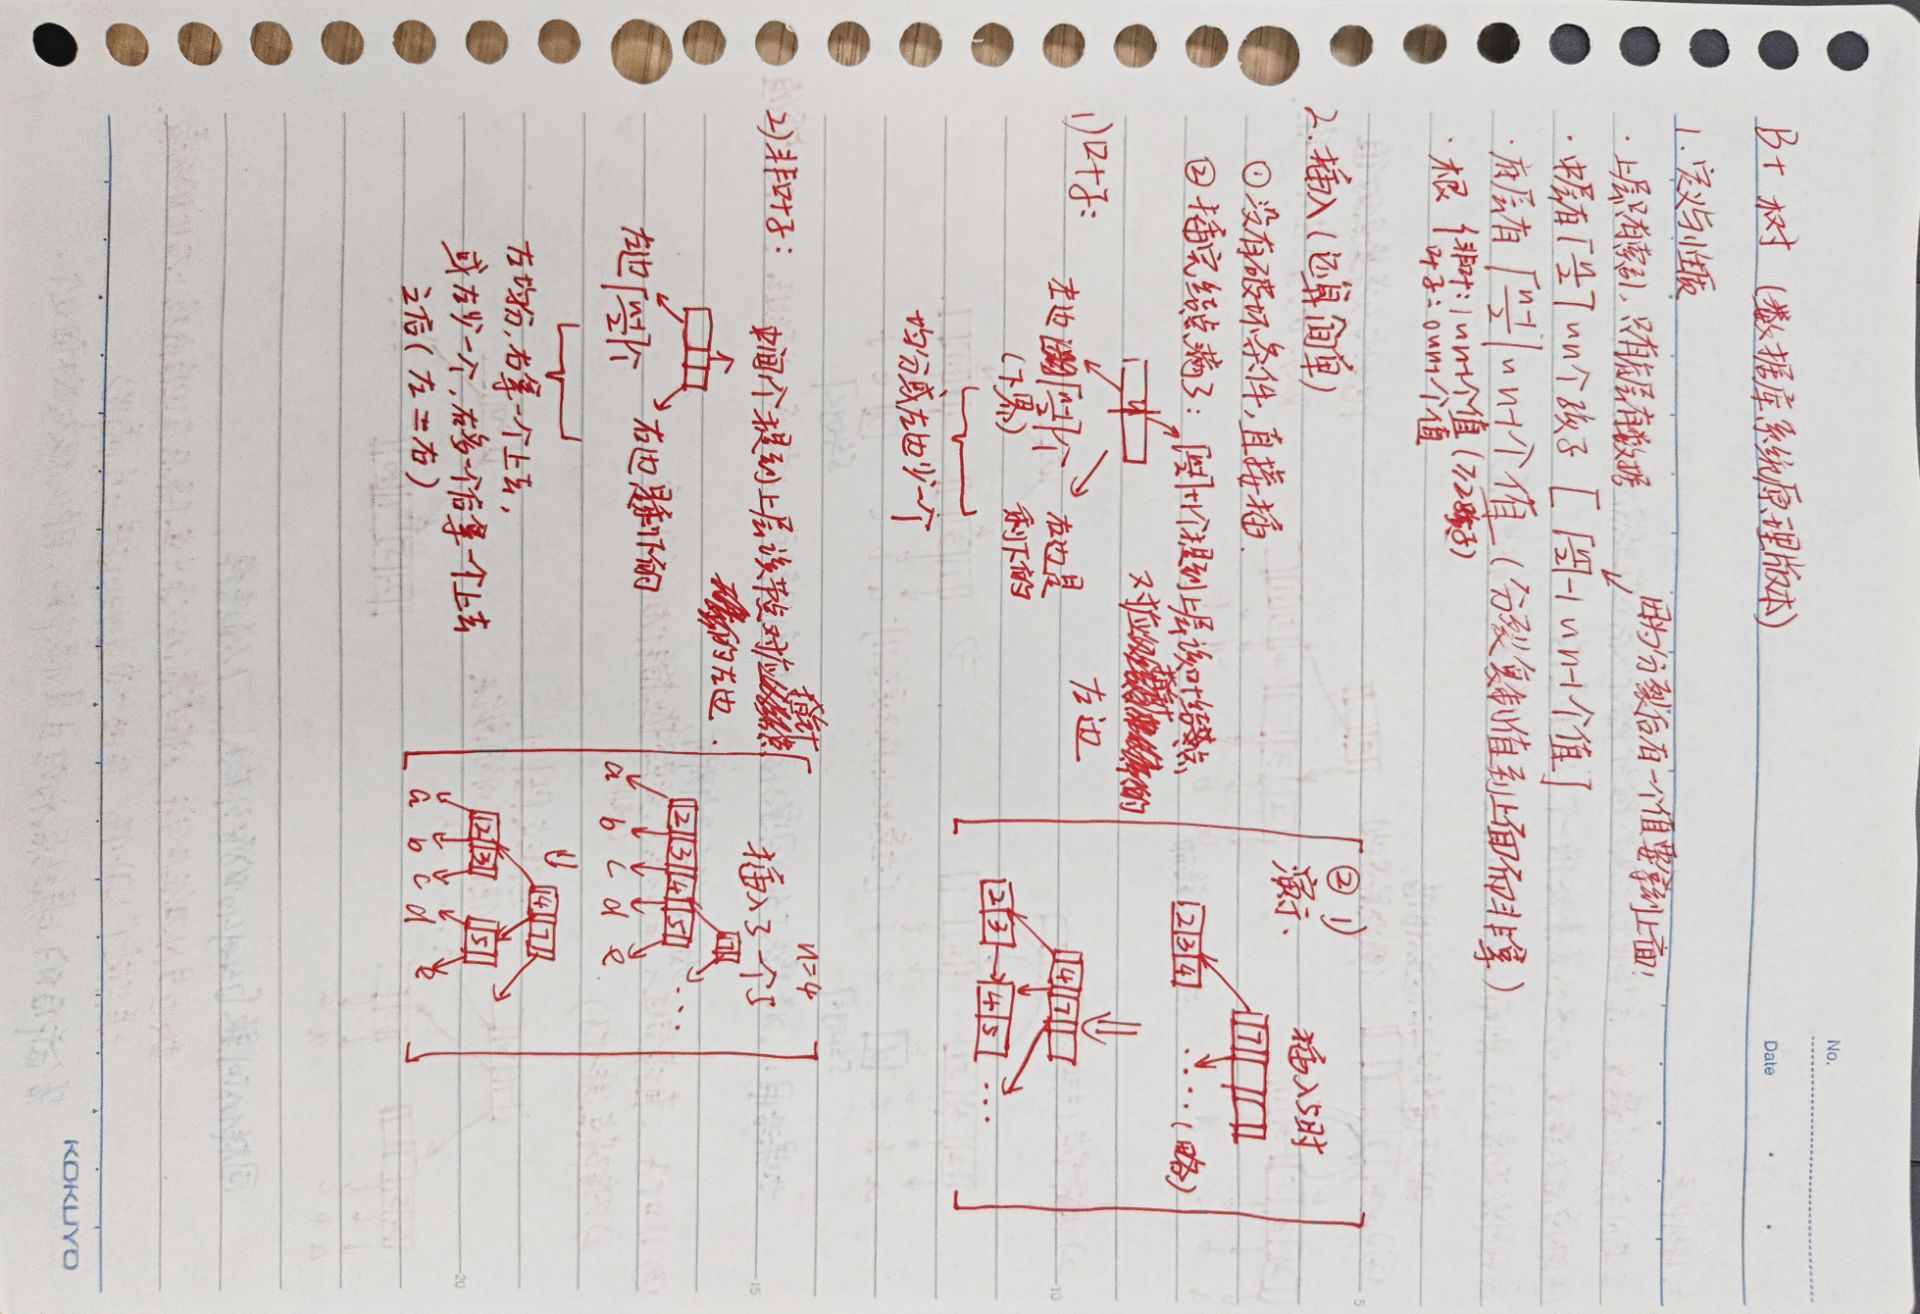 No.
Date
B+ 树 (数据库系统原理版本)
1. 定义与性质
· 上层只有索引, 只有底层有数据
因为分裂后有一个值要拿到上面!
· 中层有⌈n/2⌉ ~ n个孩子 [ ⌈n/2⌉-1 ~ n-1个值 ]
· 底层有⌈(n-1)/2⌉ ~ n-1个值 (分裂复制值到上面而非拿)
· 根 { 非叶: 1 ~ n-1个值 (≥2孩子)
叶子: 0 ~ n-1个值
2. 插入 (还算简单)
① 没有破坏条件, 直接插.
② 插完结点满了:
+1个提到上层该叶结点
对应 指针 的
左边
1) 叶子:
左边 ⌈(n-1)/2⌉个
(下界)
右边是
剩下的
均分或左边少一个
② 1)
演示.
插入5时
7
2 3 4
.... (略)
4 7
2 3
4 5
...
2) 非叶子:
中间个提到上层该节点对应 指针
的左边.
左边 个
右边是剩下的
左均分, 右拿一个上去,
或左少一个, 右多一个后拿一个上去
之后 ( 左 = 右 )
n=4
插入了一个5
7
2 3 4 5
...
a b c d e
4 7
2 3
5
a b c d e
5
10
15
20
KOKUYO